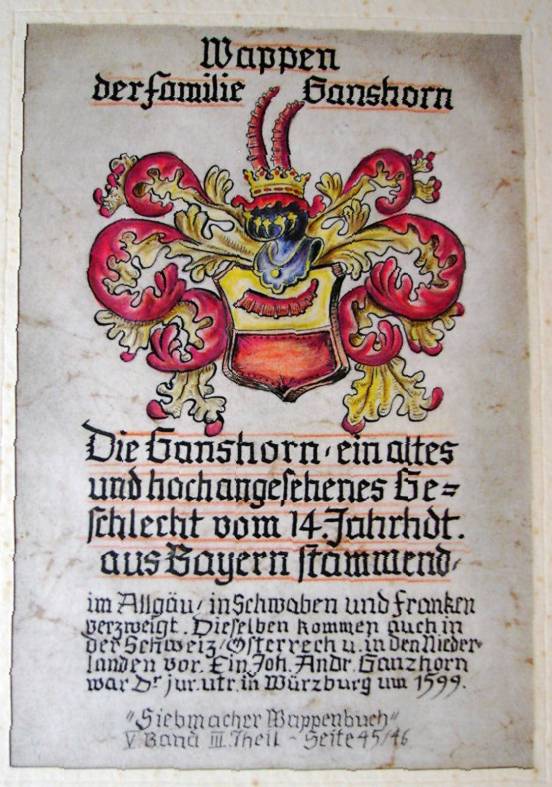 Wappen
der Familie Ganshorn
Die Ganshorn, ein altes
und hochangesehenes Ge=
schlecht vom 14. Jahrhdt.
aus Bayern stammend,
im Allgäu, in Schwaben und Franken
verzweigt. Dieselben kommen auch in
der Schweiz, Österrech u. in den Nieder-
landen vor. Ein Joh. Andr. Ganzhorn
war Dr jur. utr. in Würzburg um 1599.
"Siebmacher Wappenbuch"
V. Band III. Theil - Seite 45/46